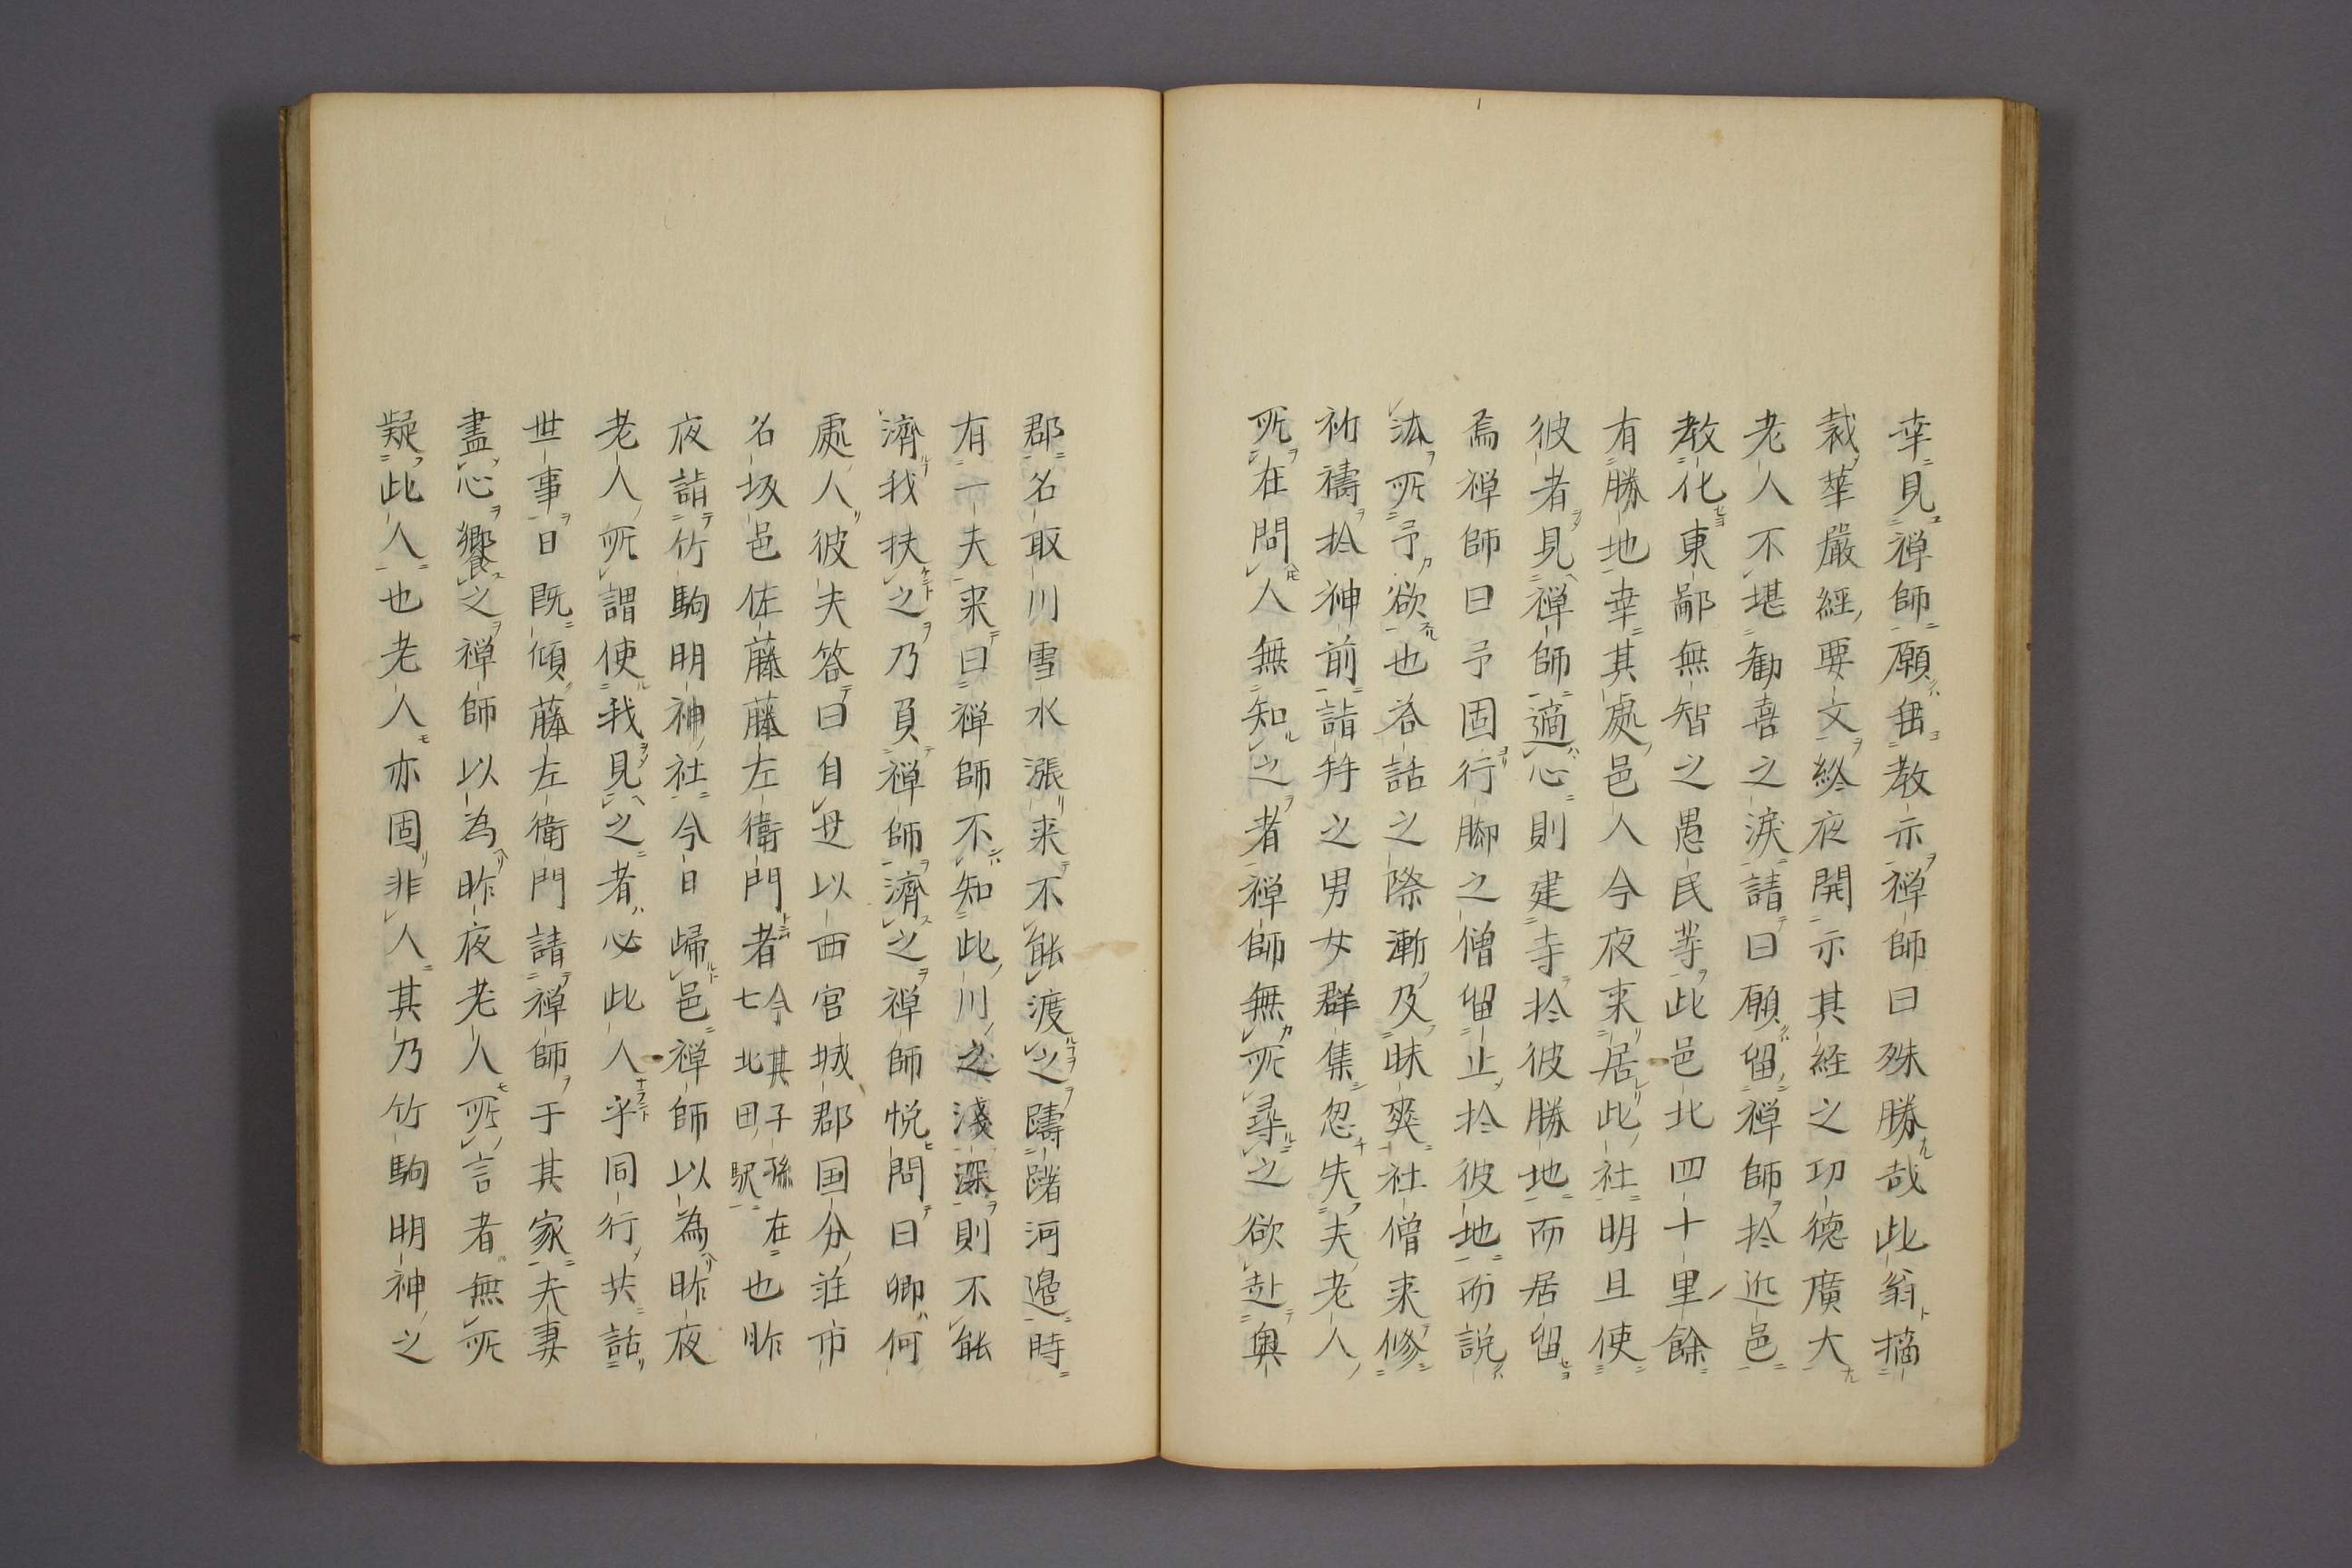 幸見禅師願無教示禅師曰殊勝哉此翁摘
裁華嚴經要文終夜開示其経之功德廣大
老人不堪勧喜之淚請曰願留禅師於近邑
教化東鄙無智之愚民等此邑北四十里餘
有勝地幸其處邑人今夜来居此社明旦使
彼者見禅師適心則建寺於彼勝地而居留
焉禅師曰予固行脚之僧留止於彼地而説
法所予欲也答話之際漸及昧爽社僧来修
祈禱於神前詣拜之男女群集忽失夫老人
所在問人無知之者禅師無所尋之欲赴奥
郡名取川雪水漲来不能渡之躊躇河邉時
有一夫来曰禅師不知此川之淺深則不能
濟我扶之乃負禅師濟之禅師悦問曰卿何
處人彼夫答曰自是以西宮城郡国分荘市
名坂邑佐藤藤左衛門者今其子孫在七北田駅也昨
夜詣竹駒明神社今日帰邑禅師以為昨夜
老人所謂使我見之者必此人乎同行共話
世事日既傾藤左衛門請禅師于其家夫妻
盡心饗之禅師以為昨夜老人所言者無所
疑此人也老人亦固非人其乃竹駒明神之